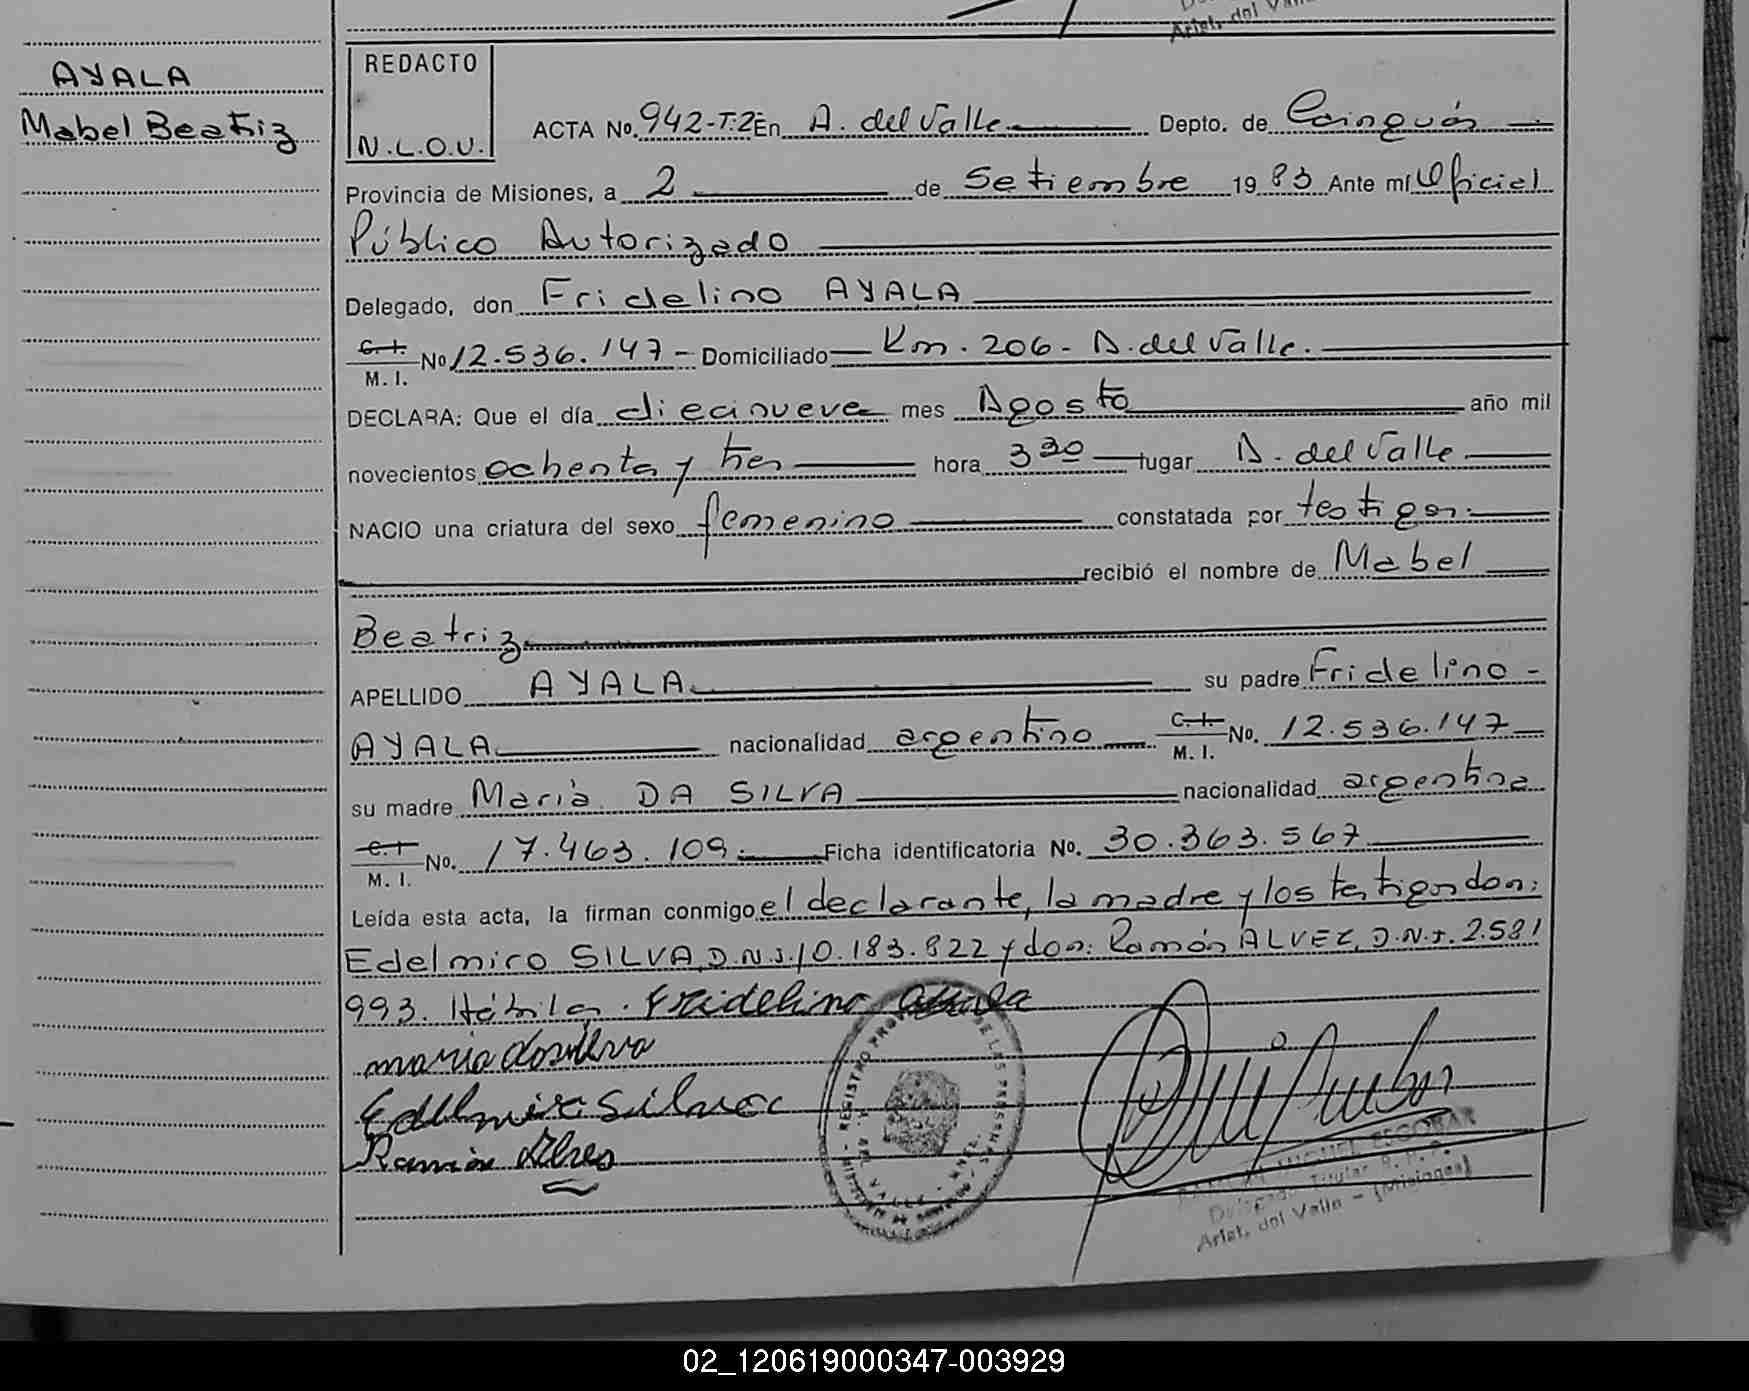 Arist. del Valle
AYALA
Mabel Beatriz
REDACTO
N.L.O.V.
ACTA No. 942-T.2 En A. del Valle Depto. de Cainguás
Provincia de Misiones, a 2 de Setiembre 19 83 Ante mí Oficial
Público Autorizado
Delegado, don Fridelino AYALA
C. I.
M. I. No 12.536.147 - Domiciliado Km. 206 - A. del Valle.
DECLARA: Que el día diecinueve mes Agosto año mil
novecientos ochenta y tres hora 3 30 lugar A. del Valle
NACIO una criatura del sexo femenino constatada por testigos.
recibió el nombre de Mabel
Beatriz
APELLIDO AYALA su padre Fridelino -
AYALA nacionalidad argentino C. I. M. I. No. 12.536.147
su madre María DA SILVA nacionalidad argentina
C. I.
M. I. No. 17.463.109. Ficha identificatoria No. 30.363.567
Leída esta acta, la firman conmigo el declarante, la madre y los testigos don:
Edelmiro SILVA, D.N.I. 10.183.822 y don: Ramón ALVEZ, D.N.I. 2.581
993. Hábiles. Fridelino ayala
maria dasilva
Edelmiro Silva
Ramón
REGISTRO DE LAS PERSONAS
MIGUEL ESCOBAR
Delegado Titular R. P. P.
Arist. del Valle - (Misiones)
02_120619000347-003929